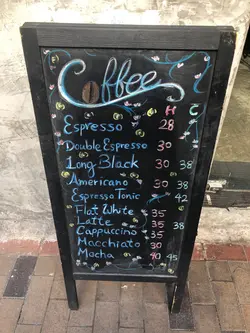 Coffee
H C
Espresso 28
Double Espresso 30
Long Black 30 38
Americano 30 38
Espresso Tonic 42
Flat White 35
Latte 35 38
Cappuccino 35
Macchiato 30
Mocha 40 45